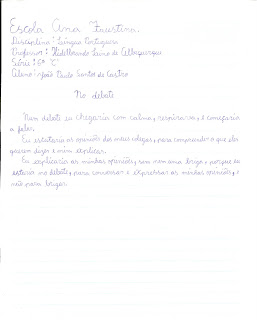 Escola Ana Faustina.
Disciplina: Língua Portuguesa
Professor: Hildelbrando Lino de Albuquerque
Série: 6º "C"
Aluno: João Paulo Santos de Castro
No debate
Num debate eu chegaria com calma, respirava, e começaria
a falar.
Eu estutaria as opiniões dos meus colegas, para compreender o que eles
querem dizer e mim explicar.
Eu explicaria as minhas opiniões, sem nem uma briga, porque eu
estaria no debate, para conversar e expressar as minhas opiniões, e
não para brigar.